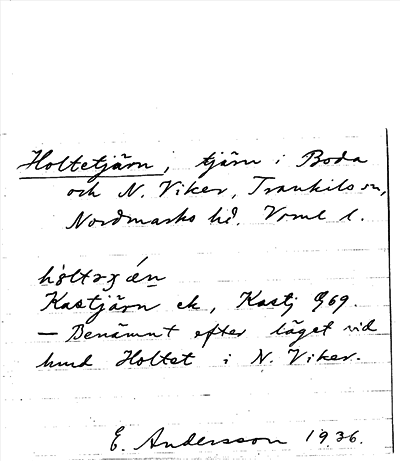 Holtetjärn, tjärn i Boda
och N. Viker, Trankils sn,
Nordmarks hd. Vrml l.
Kastjärn ek, Kastj 969.
— Benämnt efter läget vid
hmd Holtet i N. Viker.
E. Andersson 1936.